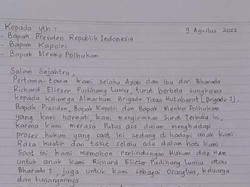 Kepada Yth : 9 Agustus 2022
Bapak Presiden Republik Indonesia
Bapak Kapolri
Bapak Menko Polhukam
Salam Sejahtera,
Pertama kami selaku Ayah dan Ibu dari Bharada
Richard Eliezer Pudihang Lumiu turut berduka sungkawa
kepada Keluarga Almarhum Brigadir Yosua Hutabarat (Brigadir J).
Bapak Presiden, Bapak Kapolri dan Bapak Menko Polhukam
yang kami hormati, kami mengirimkan Surat Terbuka ini,
karena kami merasa Putus asa dalam menghadapi
proses hukum yang saat ini sedang di hadapi anak kami.
Rasa kuatir dan takut selalu ada dalam hati kami
Saat ini kami memohon Perlindungan Hukum
untuk anak kami Richard Eliezer Pudihang Lumiu atau
Bharada E, juga untuk kami sebagai Orangtua, keluarga
dan tunangannya